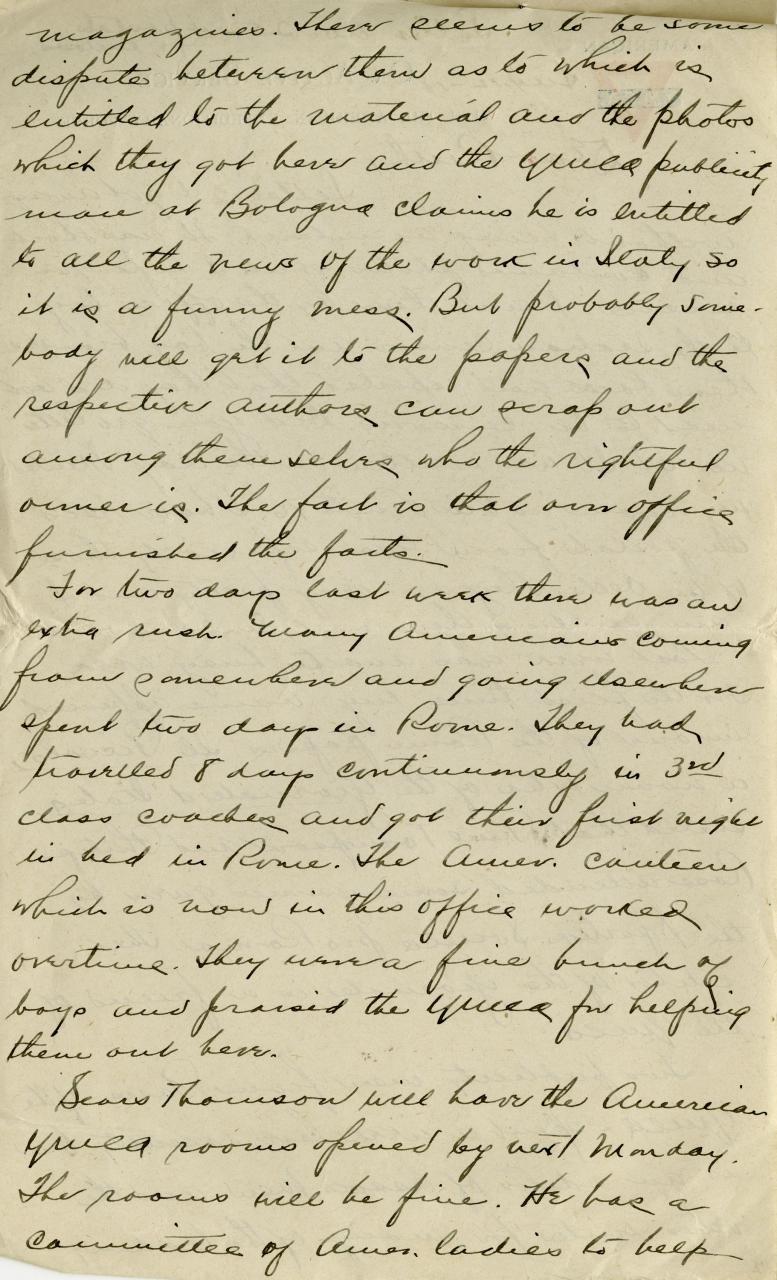 magazines. There seems to be some
dispute between them as to which is
entitled to the material and the photos
which they got here and the YMCA publicity
man at Bologna claims he is entitled
to all the news of the work in Italy so
it is a funny mess. But probably some-
body will get it to the papers and the
respective authors can scrap out
among themselves who the rightful
owner is. The fact is that our office
furnished the facts.
For two days last week there was an
extra rush. Many Americans coming
from somewhere and going elsewhere
spent two days in Rome. They had
travelled 8 days continuously in 3rd
class coaches and got their first night
in bed in Rome. The Amer. canteen
which is now in this office worked
overtime. They were a fine bunch of
boys and praised the YMCA for helping
them out here.
Sears Thomson will have the American
YMCA rooms opened by next Monday.
The rooms will be fine. He has a
committee of Amer. ladies to help